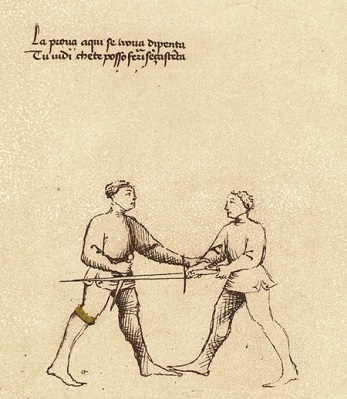 La prova aqui se trova dipenta
Tu vidi chete posso feri seça steta